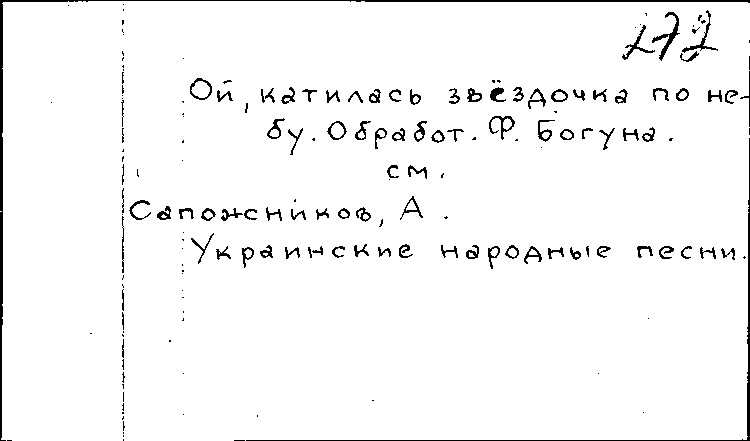 272
Ой, катилась звёздочка по не-
бу. Обработ. Ф. Богуна.
см.
Сапожников, А.
Украинские народные песни.